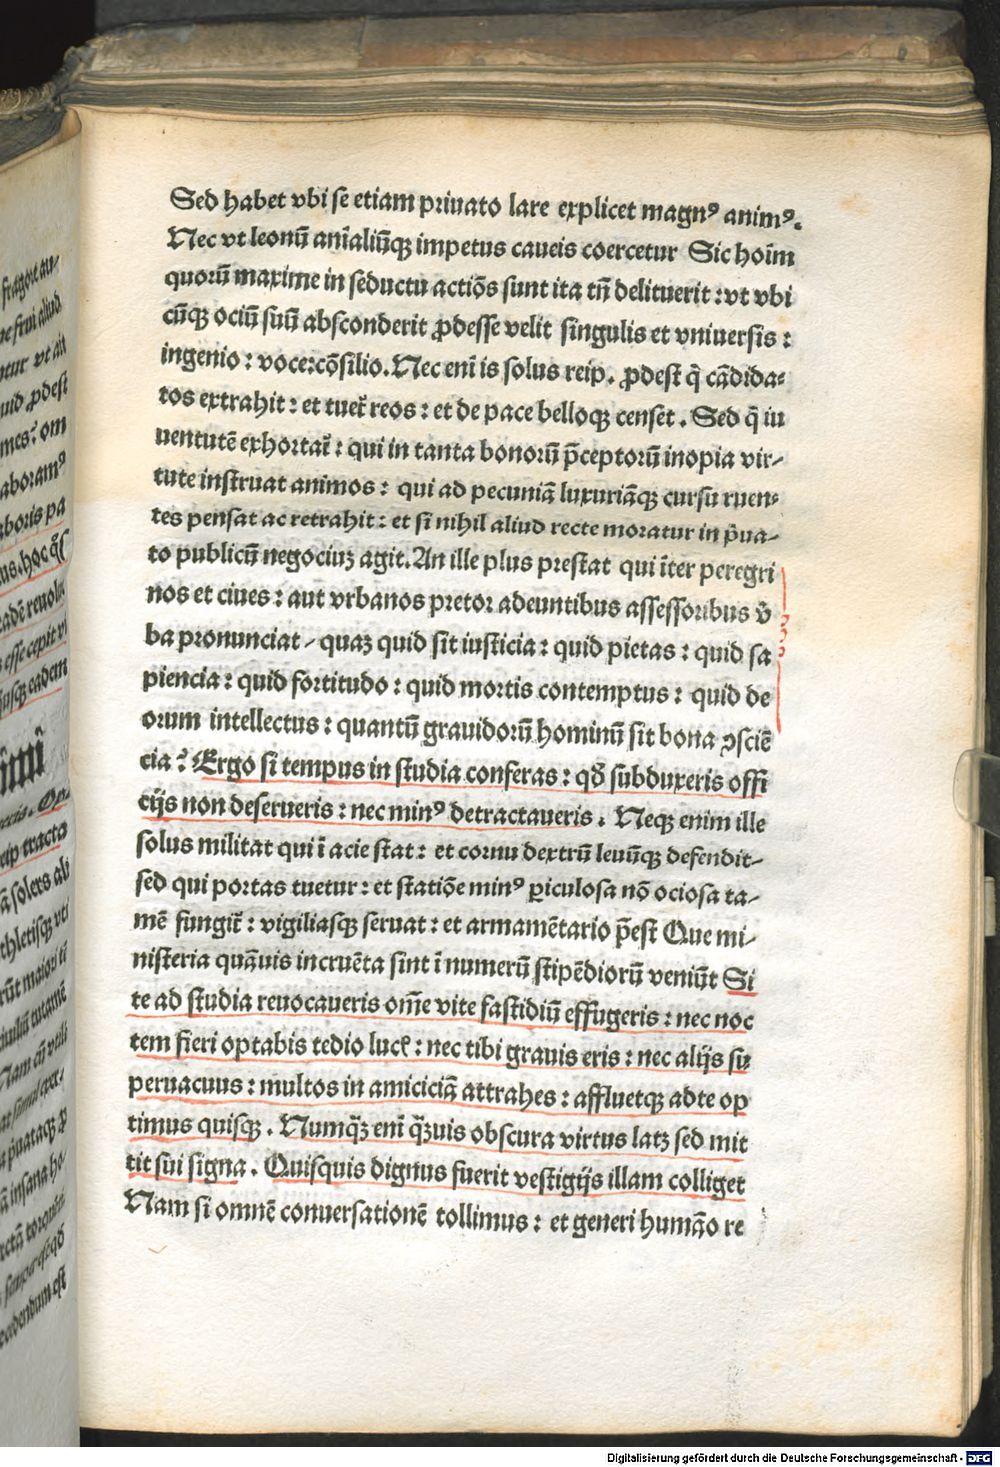 Sed habet vbi se etiam priuato lare explicet magnꝰ animꝰ.
Nec vt leonū aniāliūqꝫ impetus caueis coercetur Sic hoīm
quorū maxime in seductu actiōs sunt ita tn̄ delituerit : vt vbi
cūqꝫ ociū suū absconderit ꝓdesse velit singulis et vniuersis :
ingenio : voce:cōsilio. Nec enī is solus reip. ꝓdest q̄ cādida⸗
tos extrahit : et tuet᷑ reos : et de pace belloqꝫ censet . Sed q̄ iu
uentutē exhortat᷑ : qui in tanta bonorū p̄ceptorū inopia vir⸗
tute instruat animos : qui ad pecuniā luxuriāqꝫ cursu ruen⸗
tes pensat ac retrahit : et si nihil aliud recte moratur in p̄ua⸗
to publicū negociuꝫ agit. An ille plus prestat qui īter peregri
nos et ciues : aut vrbanos pretor adeuntibus assessoribus v̄
ba pronunciat / quaꝫ quid sit iusticia : quid pietas : quid sa
piencia : quid fortitudo : quid mortis contemptus : quid de
orum intellectus : quantū grauidorū hominū sit bona ꝯsciē
cia? Ergo si tempus in studia conferas : qđ subduxeris offi
cijs non deserueris : nec minꝰ detractaueris . Neqꝫ enim ille
solus militat qui ī acie stat : et cornu dextrū leuūqꝫ defendit⸗
sed qui portas tuetur : et statiōe minꝰ ꝑiculosa nō ociosa ta⸗
mē fungit᷑ : vigiliasqꝫ seruat : et armamētario p̄est Que mi⸗
nisteria quāuis incruēta sint ī numerū stipēdiorū veniūt Si
te ad studia reuocaueris om̄e vite fastidiū effugeris : nec noc
tem fieri optabis tedio lucꝭ : nec tibi grauis eris : nec alijs su
peruacuus : multos in amiciciā attrahes : affluetqꝫ adte op
timus quisqꝫ . Numq̄ꝫ enī q̄ꝫuis obscura virtus latꝫ sed mit
tit sui signa . Quisquis dignus fuerit vestigijs illam colliget
Nam si omnē conuersationē tollimus : et generi humāo re
Digitalisierung gefördert durch die Deutsche Forschungsgemeinschaft - DFG